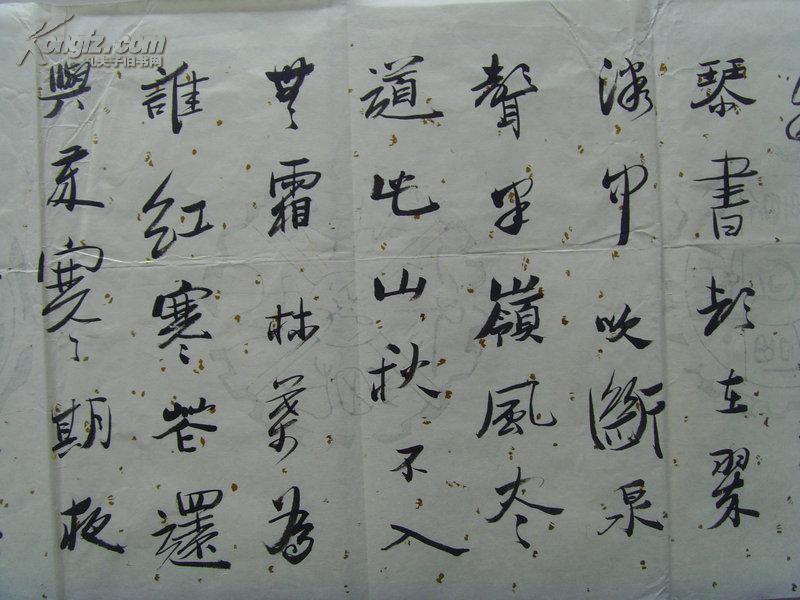 Kongfz.com
孔夫子旧书网
琴書都在翠
微中吹斷泉
聲半嶺風尽
道此山秋不入
無霜林葉為
誰紅寒花還
與期